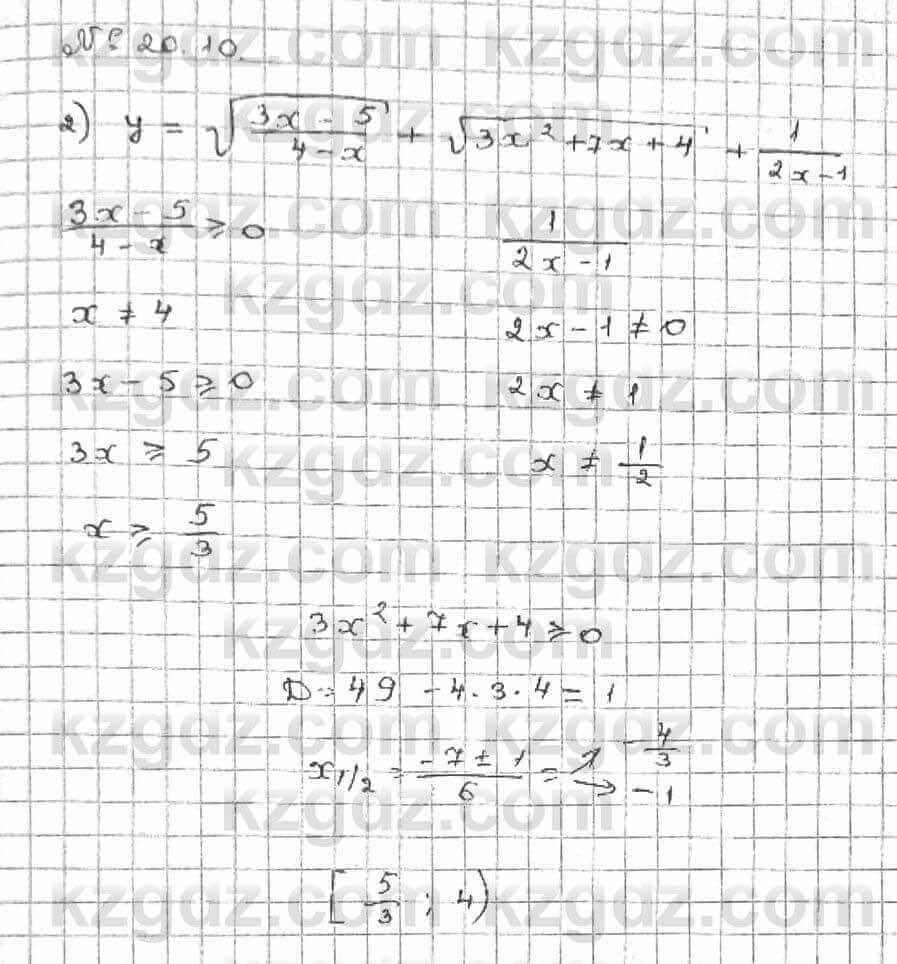 № 20.10.
2) y = √((3x - 5)/(4 - x)) + √(3x² + 7x + 4) + 1/(2x - 1)
(3x - 5)/(4 - x) ≥ 0
x ≠ 4
3x - 5 ≥ 0
3x ≥ 5
x ≥ 5/3
1/(2x - 1)
2x - 1 ≠ 0
2x ≠ 1
x ≠ 1/2
3x² + 7x + 4 ≥ 0
D = 49 - 4 · 3 · 4 = 1
x1/2 = (-7 ± 1)/6 = ↗ -4/3
→ -1
[5/3 ; 4)
kzgdz.com